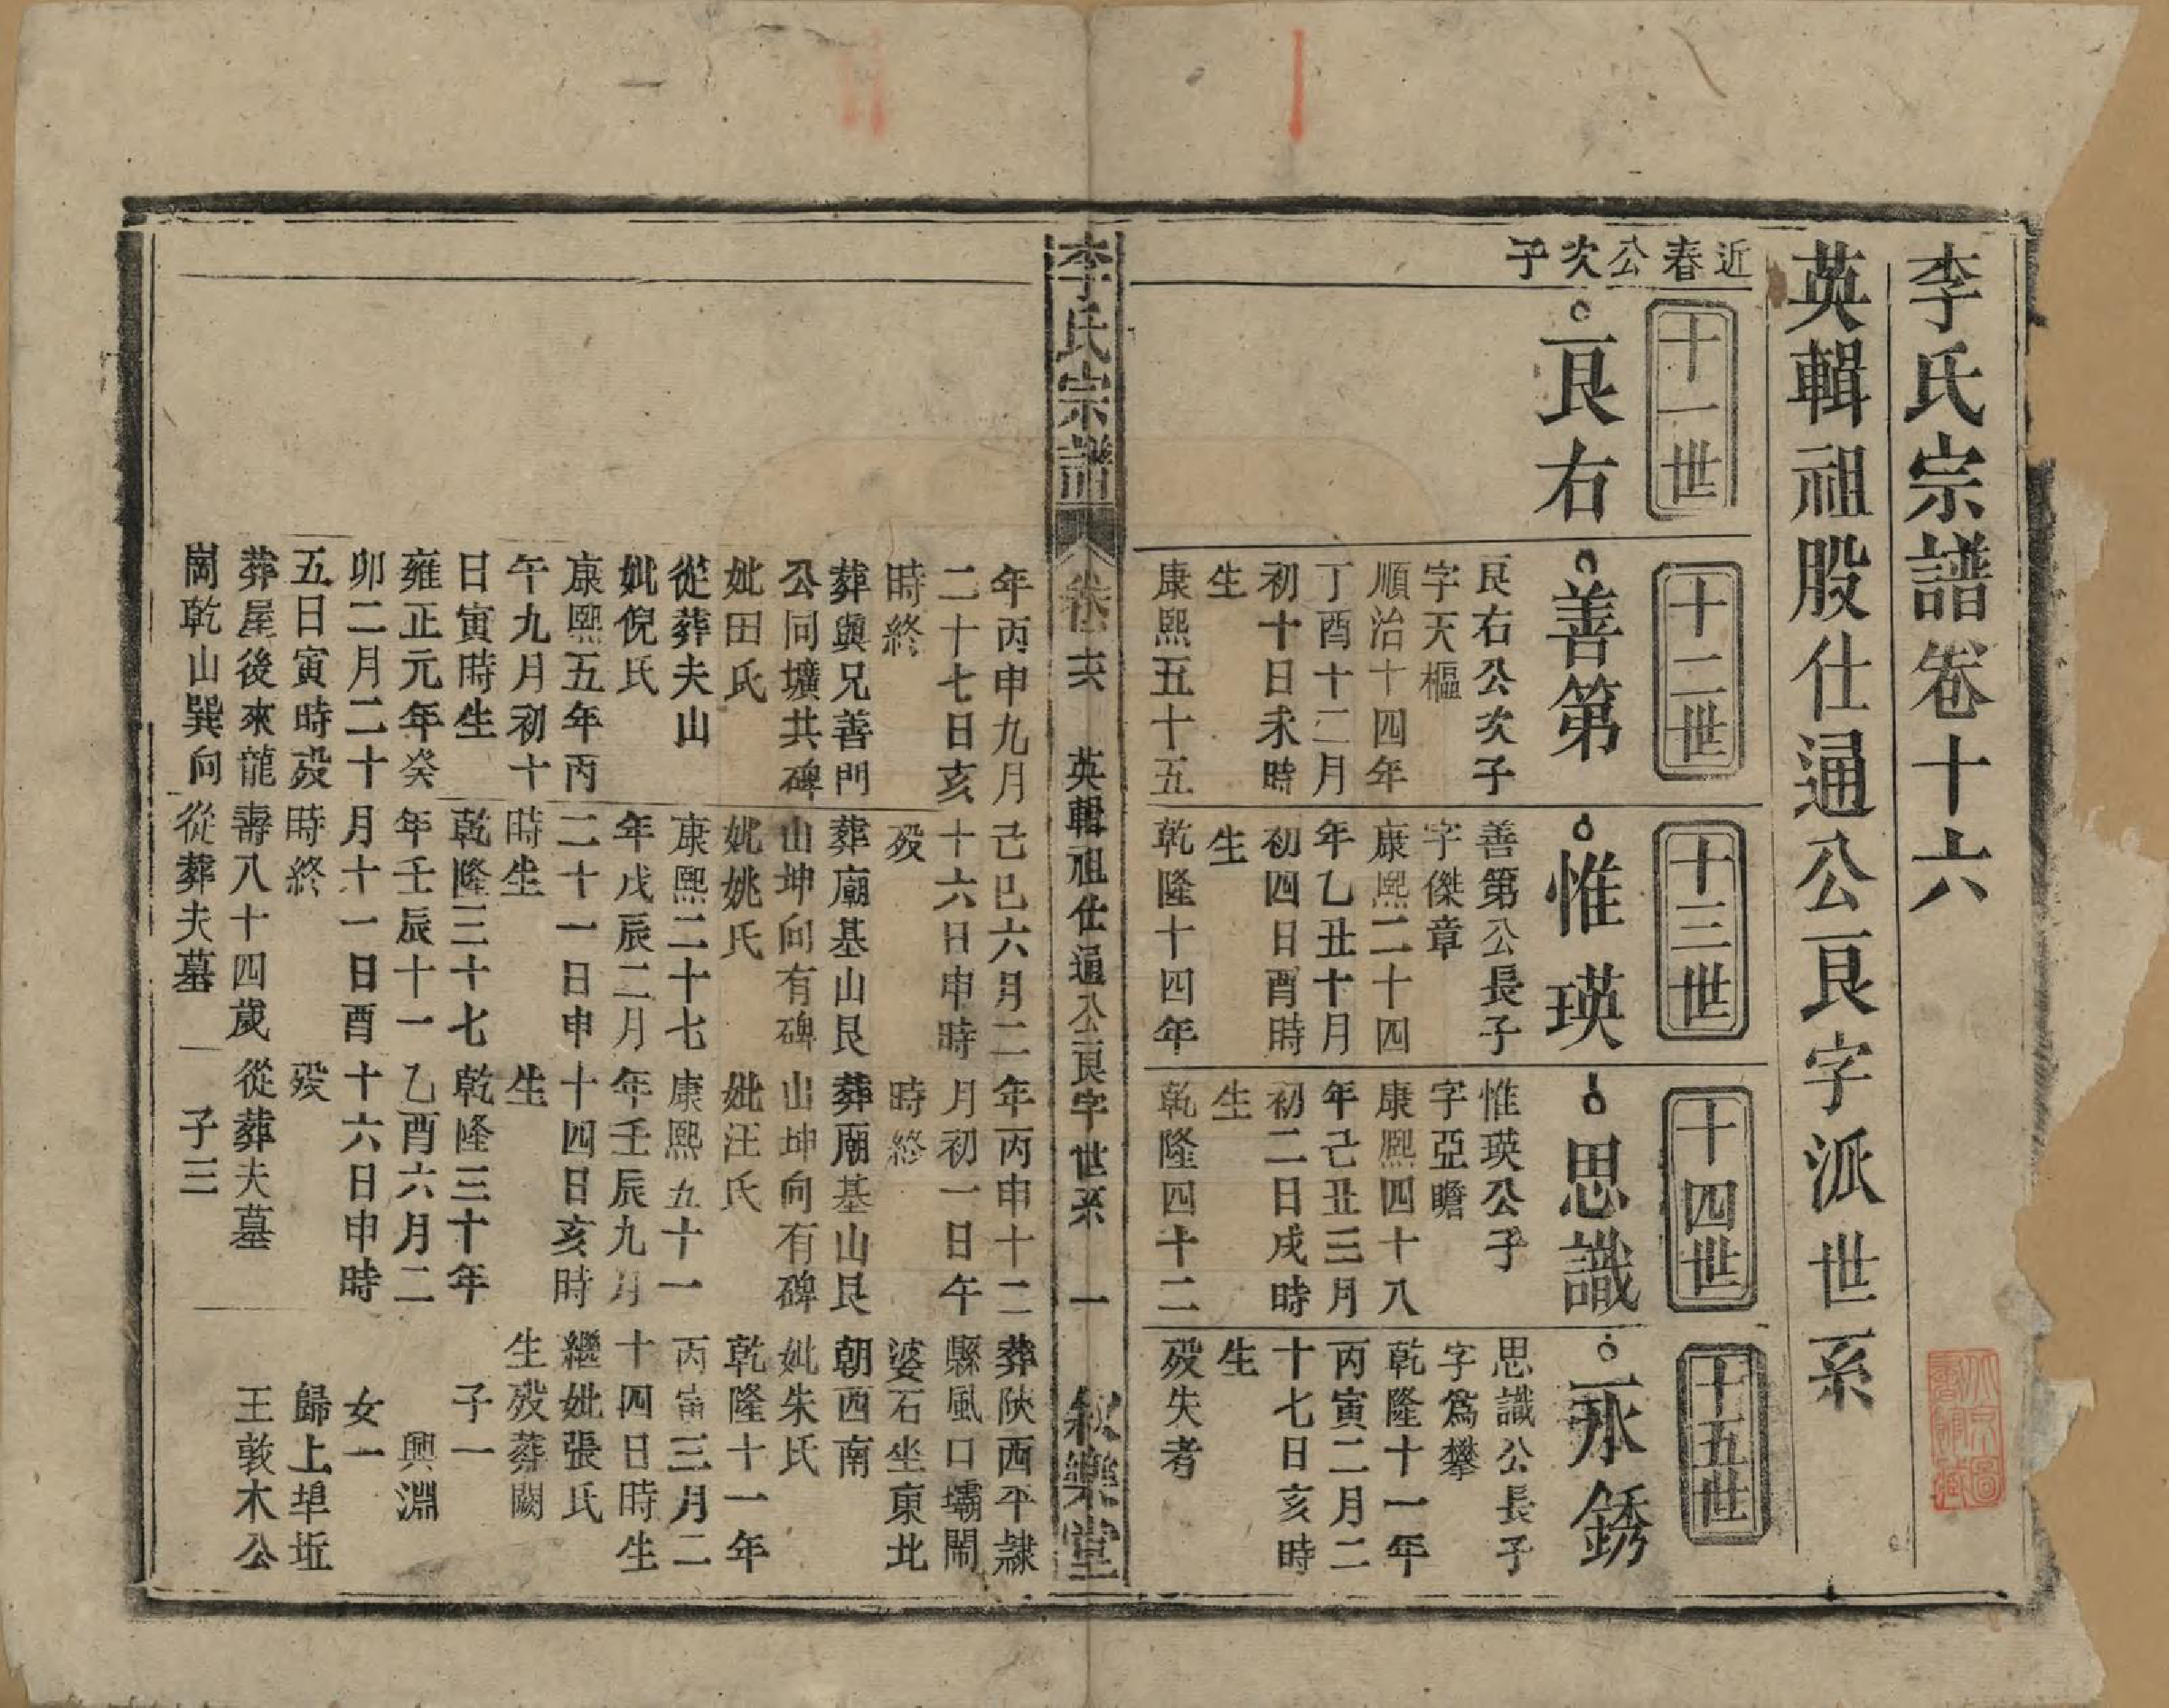 李氏宗譜卷十六
英輯祖股仕通公良字派世系
近春公次子
十一世
良右
十二世
善第
良右公次子
字天樞
順治十四年
丁酉十二月
初十日未時
生
康熙五十五
年丙申九月
二十七日亥
時終
葬與兄善門
公同壙共碑
妣田氏
從葬夫山
妣倪氏
康熙五年丙
午九月初十
日寅時生
雍正元年癸
卯二月二十
五日寅時歿
葬屋後來龍
崗乾山巽向
十三世
惟瑛
善第公長子
字傑章
康熙二十四
年乙丑十月
初四日酉時
生
乾隆十四年
己巳六月二
十六日申時
歿
葬廟基山艮
山坤向有碑
妣姚氏
康熙二十七
年戊辰二月
二十一日申
時生
乾隆三十七
年壬辰十一
月十一日酉
時終
壽八十四歲
從葬夫墓
十四世
思識
惟瑛公子
字亞瞻
康熙四十八
年己丑三月
初二日戌時
生
乾隆四十二
年丙申十二
月初一日午
時終
葬廟基山艮
山坤向有碑
妣汪氏
康熙五十一
年壬辰九月
十四日亥時
生
乾隆三十年
乙酉六月二
十六日申時
歿
從葬夫墓
子三
十五世
永銹
思識公長子
字爲攀
乾隆十一年
丙寅二月二
十七日亥時
生
歿失考
葬陝西平隸
縣風口壩鬧
婆石坐東北
朝西南
妣朱氏
乾隆十一年
丙寅三月二
十四日時生
繼妣張氏
生歿葬闕
子一
興淵
女一
歸上埠坵
王敦木公
李氏宗譜
卷十六
英輯祖仕通公良字世系
一
敘樂堂